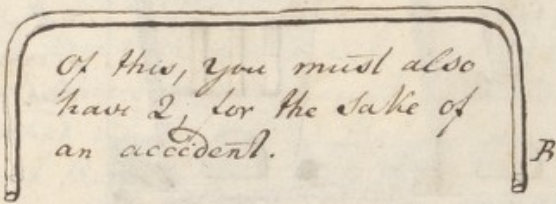 Of this, you must also
have 2, for the sake of
an accident.
B